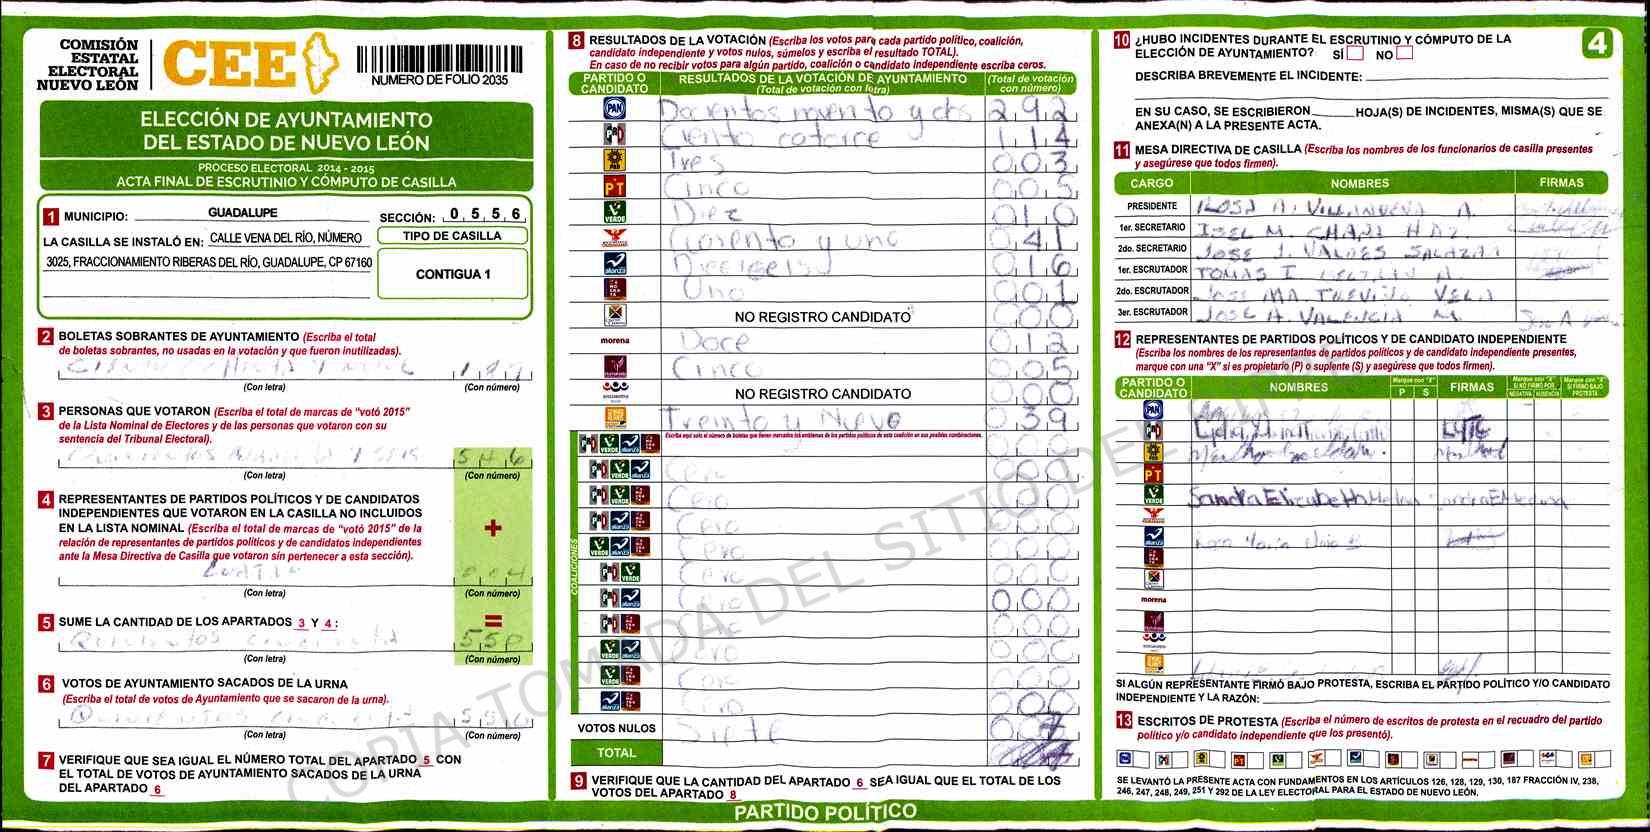 COMISIÓN
ESTATAL
ELECTORAL
NUEVO LEÓN
CEE
NUMERO DE FOLIO 2035
ELECCIÓN DE AYUNTAMIENTO
DEL ESTADO DE NUEVO LEÓN
PROCESO ELECTORAL 2014 - 2015
ACTA FINAL DE ESCRUTINIO Y CÓMPUTO DE CASILLA
1 MUNICIPIO: GUADALUPE SECCIÓN: 0 5 5 6
LA CASILLA SE INSTALÓ EN: CALLE VENA DEL RÍO, NÚMERO
3025, FRACCIONAMIENTO RIBERAS DEL RÍO, GUADALUPE, CP 67160
TIPO DE CASILLA
CONTIGUA 1
2 BOLETAS SOBRANTES DE AYUNTAMIENTO (Escriba el total
de boletas sobrantes, no usadas en la votación y que fueron inutilizadas).
(Con letra) (Con número)
3 PERSONAS QUE VOTARON (Escriba el total de marcas de "votó 2015"
de la Lista Nominal de Electores y de las personas que votaron con su
sentencia del Tribunal Electoral).
546
(Con letra) (Con número)
4 REPRESENTANTES DE PARTIDOS POLÍTICOS Y DE CANDIDATOS
INDEPENDIENTES QUE VOTARON EN LA CASILLA NO INCLUIDOS
EN LA LISTA NOMINAL (Escriba el total de marcas de "votó 2015" de la
relación de representantes de partidos políticos y de candidatos independientes
ante la Mesa Directiva de Casilla que votaron sin pertenecer a esta sección).
+
004
(Con letra) (Con número)
5 SUME LA CANTIDAD DE LOS APARTADOS 3 Y 4:
=
550
(Con letra) (Con número)
6 VOTOS DE AYUNTAMIENTO SACADOS DE LA URNA
(Escriba el total de votos de Ayuntamiento que se sacaron de la urna).
550
(Con letra) (Con número)
7 VERIFIQUE QUE SEA IGUAL EL NÚMERO TOTAL DEL APARTADO 5 CON
EL TOTAL DE VOTOS DE AYUNTAMIENTO SACADOS DE LA URNA
DEL APARTADO 6
8 RESULTADOS DE LA VOTACIÓN (Escriba los votos para cada partido político, coalición,
candidato independiente y votos nulos, súmelos y escriba el resultado TOTAL).
En caso de no recibir votos para algún partido, coalición o candidato independiente escriba ceros.
PARTIDO O CANDIDATO RESULTADOS DE LA VOTACIÓN DE AYUNTAMIENTO (Total de votación con letra) (Total de votación con número)
PAN Docientos noventa y dos 292
PRI Ciento catorce 114
PRD Tres 003
PT Cinco 005
VERDE Diez 010
Cuarenta y uno 041
alianza Dieciseis 016
DEMÓCRATA Uno 001
NO REGISTRO CANDIDATO 000
morena Doce 012
Cinco 005
NO REGISTRO CANDIDATO 000
Treinta y Nueve 039
COALICIONES
Escriba aquí solo el número de boletas que tienen marcados los emblemas de los partidos políticos de esta coalición en sus posibles combinaciones.
000
Cero 000
Cero 000
Cero 000
Cero 000
Cero 000
Cero 000
Cero 000
Cero 000
Cero 000
Cero 000
VOTOS NULOS Siete 007
TOTAL
9 VERIFIQUE QUE LA CANTIDAD DEL APARTADO 6 SEA IGUAL QUE EL TOTAL DE LOS
VOTOS DEL APARTADO 8
PARTIDO POLÍTICO
4
10 ¿HUBO INCIDENTES DURANTE EL ESCRUTINIO Y CÓMPUTO DE LA
ELECCIÓN DE AYUNTAMIENTO? SÍ NO
DESCRIBA BREVEMENTE EL INCIDENTE:
EN SU CASO, SE ESCRIBIERON HOJA(S) DE INCIDENTES, MISMA(S) QUE SE
ANEXA(N) A LA PRESENTE ACTA.
11 MESA DIRECTIVA DE CASILLA (Escriba los nombres de los funcionarios de casilla presentes
y asegúrese que todos firmen).
CARGO NOMBRES FIRMAS
PRESIDENTE ROSA A. VILLANUEVA A.
1er. SECRETARIO
2do. SECRETARIO JOSE J. VALDES SALAZAR
1er. ESCRUTADOR TOMAS I
2do. ESCRUTADOR JOSE MA. TREVIÑO VELA
3er. ESCRUTADOR JOSE A. VALENCIA M. Jose A
12 REPRESENTANTES DE PARTIDOS POLÍTICOS Y DE CANDIDATO INDEPENDIENTE
(Escriba los nombres de los representantes de partidos políticos y de candidato independiente presentes,
marque con una "X" si es propietario (P) o suplente (S) y asegúrese que todos firmen).
PARTIDO O CANDIDATO NOMBRES Marque con "X" P S FIRMAS Marque con "X" SI NO FIRMÓ POR: NEGATIVA AUSENCIA Marque con "X" SI FIRMÓ BAJO PROTESTA
PAN
PRI
PRD
PT
VERDE Sandra Elizabeth Medina Sandra E Medina
alianza
morena
SI ALGÚN REPRESENTANTE FIRMÓ BAJO PROTESTA, ESCRIBA EL PARTIDO POLÍTICO Y/O CANDIDATO
INDEPENDIENTE Y LA RAZÓN:
13 ESCRITOS DE PROTESTA (Escriba el número de escritos de protesta en el recuadro del partido
político y/o candidato independiente que los presentó).
SE LEVANTÓ LA PRESENTE ACTA CON FUNDAMENTOS EN LOS ARTÍCULOS 126, 128, 129, 130, 187 FRACCIÓN IV, 238,
246, 247, 248, 249, 251 Y 292 DE LA LEY ELECTORAL PARA EL ESTADO DE NUEVO LEÓN.
COPIA TOMADA DEL SITIO DE